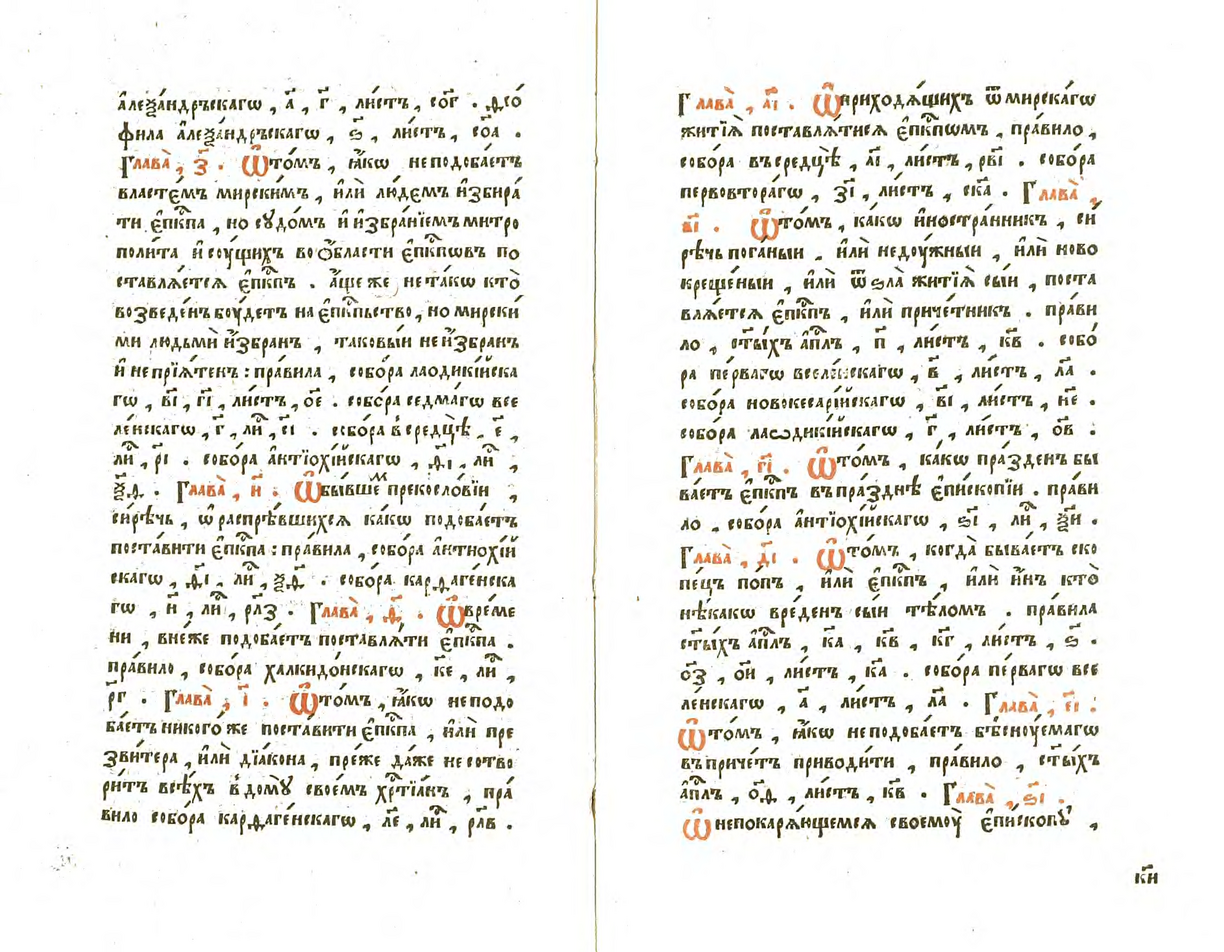 а҆леѯа́ндръскагѡ , а҃ , г҃ , ли́стъ , со҃г . ѳео́
фила а҆леѯа́ндръскагѡ , ѕ҃ , ли́стъ , со҃а .
Глава̀ , з҃ . Ѿто́мъ , ꙗ҆́кѡ неподоба́етъ
власте́мъ мирски́мъ , и҆лѝ лю́демъ и҆збира́
ти є҆пⷭ҇кпа , но сꙋдо́мъ и҆ и҆збра́нїемъ митро
поли́та и҆ сꙋ́щихъ во о҆́бласти є҆пⷭ҇кпѡвъ по
ставлѧ́етсѧ є҆пⷭ҇кпъ . а҆́ще же не та́кѡ кто̀
возведе́нъ бꙋ́детъ на є҆пⷭ҇кпьство , но мирски
ми людьмѝ и҆збра́нъ , таковы́и не и҆збра́нъ
и҆ не прїѧ́тенъ : пра́вила , собо́ра лаодикі́йска
гѡ , в҃і , г҃і , ли́стъ , о҃е . собо́ра седма́гѡ все
ле́нскагѡ , г҃ , лиⷭ҇ , с҃і . собо́ра в середцѣ̀ , е҃ ,
лиⷭ҇ , р҃і . собо́ра а҆нтїохі́йскагѡ , ѳ҃і , лиⷭ҇ ,
ѯ҃ѳ . Глава̀ , и҃ . Ѡбы́вшеⷨ прекосло́вїи ,
си́рѣчь , ѡ҆ распрѣ́вшихсѧ ка́кѡ подоба́етъ
поста́вити є҆пⷭ҇кпа : пра́вила , собо́ра а҆нтиохі́й
скагѡ , ѳ҃і , лиⷭ҇ , ѯ҃ѳ . собо́ра карѳаге́нска
гѡ , н҃ , лиⷭ҇ , рл҃з . Глава̀ , ѳ҃ . Ѡ҆вре́ме
ни , в не́же подоба́етъ поставлѧ́ти є҆пⷭ҇кпа .
пра́вило , собо́ра халкидо́нскагѡ , к҃е , лиⷭ҇ ,
р҃г . Глава̀ , і҃ . Ѿто́мъ , ꙗ҆́кѡ не подо
ба́етъ никого́ же поста́вити є҆пⷭ҇кпа , и҆лѝ пре
зви́тера , и҆лѝ дїа́кона , пре́же да́же не сотво
ри́тъ всѣ́хъ в домꙋ̀ свое́мъ хрⷭ҇тїа́нъ , пра́
вило собо́ра карѳаге́нскагѡ , л҃е , лиⷭ҇ , рл҃в .
Глава̀ , а҃і . Ѡ҆приходѧ́щихъ ѿ мирска́гѡ
житїѧ̀ поставлѧ́тисѧ є҆пⷭ҇кпѡмъ , пра́вило ,
собо́ра въ середцѣ̀ , а҃і , ли́стъ , рв҃і . собо́ра
первовтора́гѡ , з҃і , ли́стъ , ск҃а . Глава̀ ,
в҃і . Ѿто́мъ , ка́кѡ и҆ностра́нникъ , си́
рѣчь пога́ныи , и҆лѝ недꙋ́жныи , и҆лѝ ново
креще́ныи , и҆лѝ ѿ ѕла̀ житїѧ̀ сы́и , поста
влѧ́етсѧ є҆пⷭ҇кпъ , и҆лѝ приче́тникъ . пра́ви
ло , ст҃ы́хъ а҆пⷭ҇лъ , п҃ , ли́стъ , к҃в . собо́
ра пе́рвагѡ вселе́нскагѡ , в҃ , ли́стъ , л҃а .
собо́ра новокесарі́йскагѡ , в҃і , ли́стъ , н҃е .
собо́ра лаѡдикі́йскагѡ , г҃ , ли́стъ , о҃в .
Глава̀ , г҃і . Ѿто́мъ , ка́кѡ пра́зденъ бы
ва́етъ є҆пⷭ҇кпъ въ пра́зднѣ є҆писко́пїи . пра́ви
ло , собо́ра а҆нтїохі́йскагѡ , ѕ҃і , лиⷭ҇ , ѯ҃и .
Глава̀ , д҃і . Ѿто́мъ , когда̀ быва́етъ ско
пе́цъ по́пъ , и҆лѝ є҆пⷭ҇кпъ , и҆лѝ и҆́нъ кто̀
нѣ́какѡ вре́денъ сы́и тѣ́ломъ . пра́вила
ст҃ы́хъ а҆пⷭ҇лъ , к҃а , к҃в , к҃г , ли́стъ , ѕ҃ .
о҃з , о҃и , ли́стъ , к҃а . собо́ра пе́рвагѡ все
ле́нскагѡ , а҃ , ли́стъ , л҃а . Глава̀ , е҃і :
Ѿто́мъ , ꙗ҆́кѡ не подоба́етъ бѣснꙋ́емагѡ
въ приче́тъ приводи́ти , пра́вило , ст҃ы́хъ
а҆пⷭ҇лъ , о҃ѳ , ли́стъ , к҃в . Глава̀ , ѕ҃і .
Ѡ҆непокарѧ́ющемсѧ своемꙋ̀ є҆пи́скопꙋ ,
к҃и